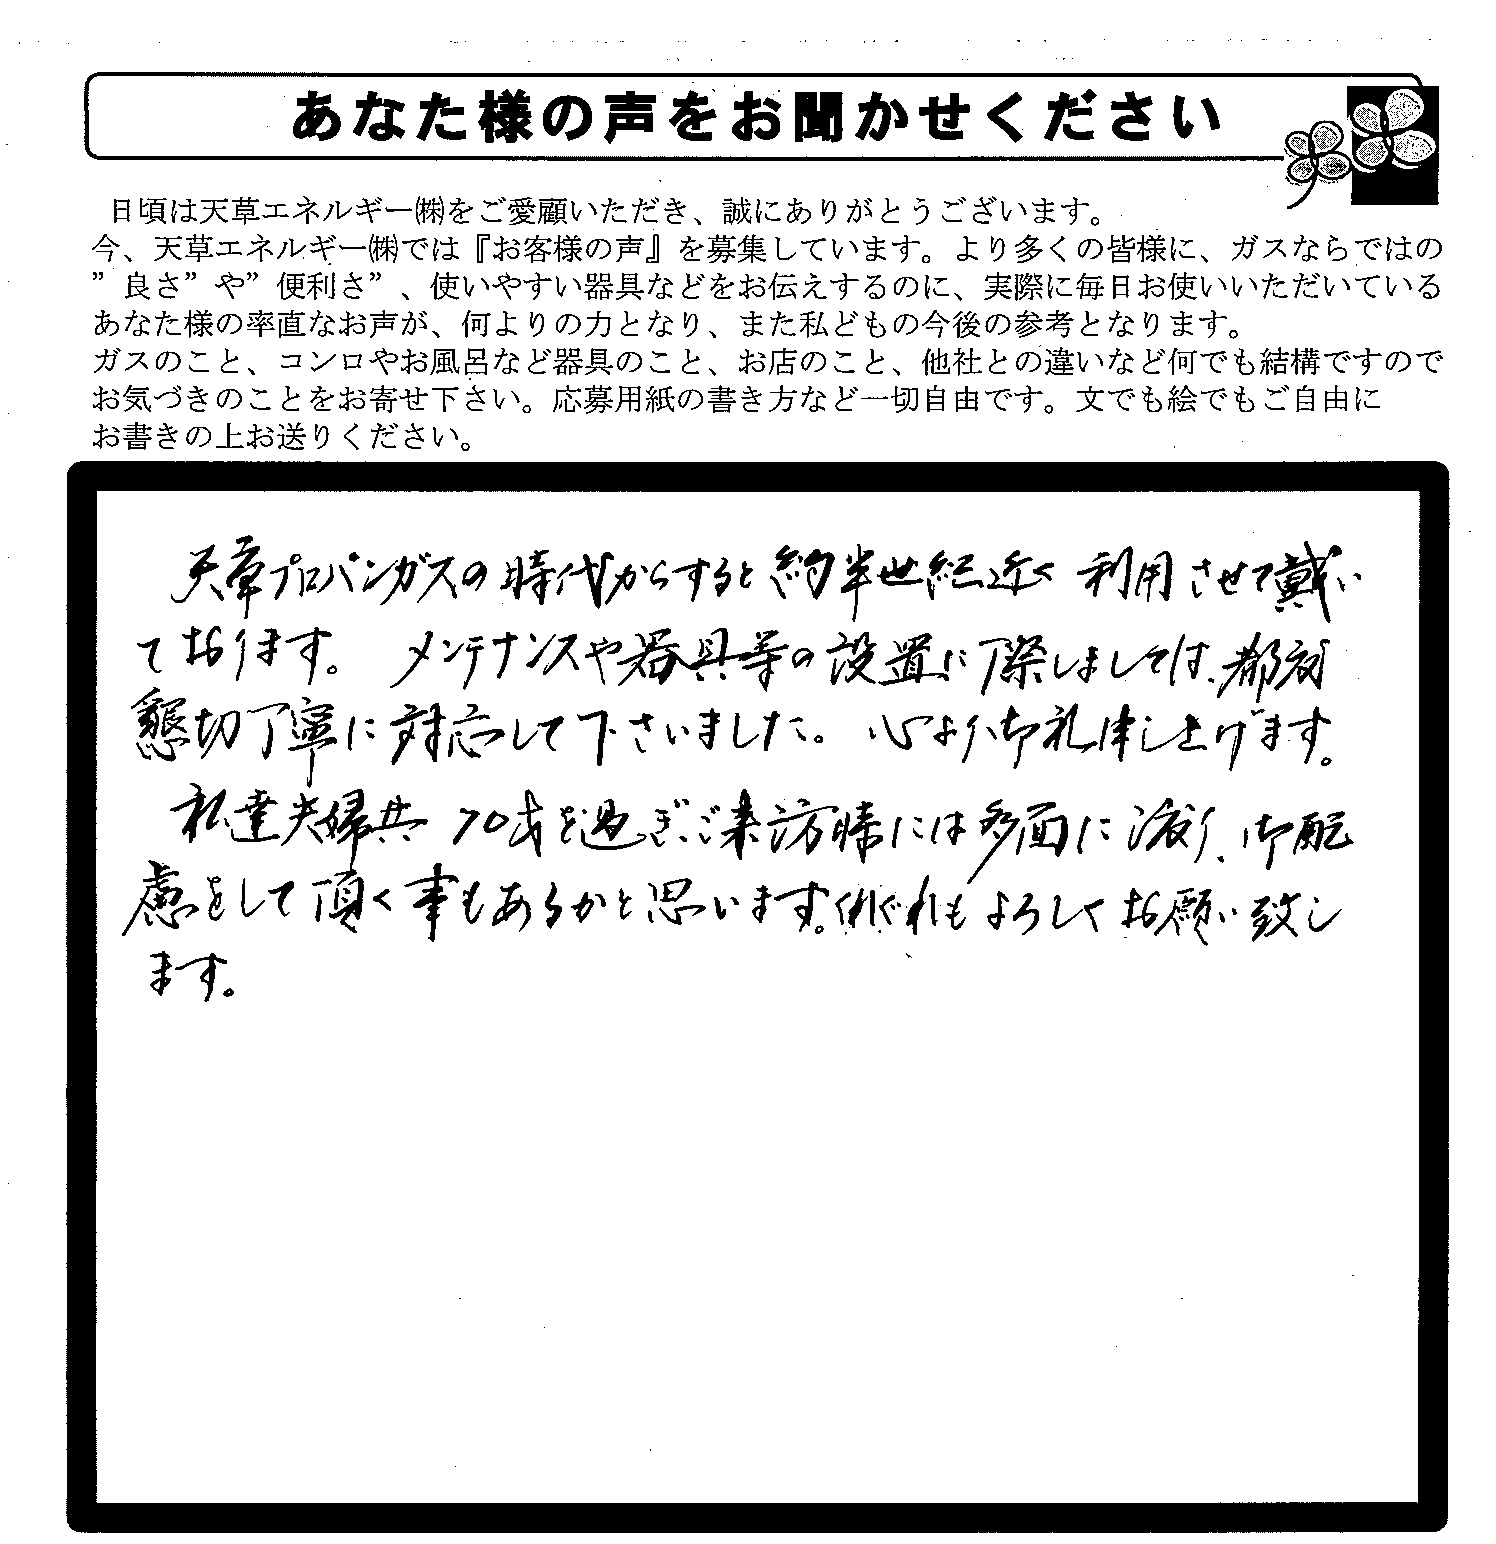 あなた様の声をお聞かせください
日頃は天草エネルギー㈱をご愛顧いただき、誠にありがとうございます。
今、天草エネルギー㈱では『お客様の声』を募集しています。より多くの皆様に、ガスならではの
”良さ”や”便利さ”、使いやすい器具などをお伝えするのに、実際に毎日お使いいただいている
あなた様の率直なお声が、何よりの力となり、また私どもの今後の参考となります。
ガスのこと、コンロやお風呂など器具のこと、お店のこと、他社との違いなど何でも結構ですので
お気づきのことをお寄せ下さい。応募用紙の書き方など一切自由です。文でも絵でもご自由に
お書きの上お送りください。
天草プロパンガスの時代からすると約半世紀近く利用させて戴い
ております。メンテナンスや器具等の設置に際しましては、都度
懇切丁寧に対応して下さいました。心より御礼申し上げます。
私達夫婦共70才を過ぎ、ご来訪時には多面に渡り、御配
慮をして頂く事もあるかと思います。くれぐれもよろしくお願い致し
ます。